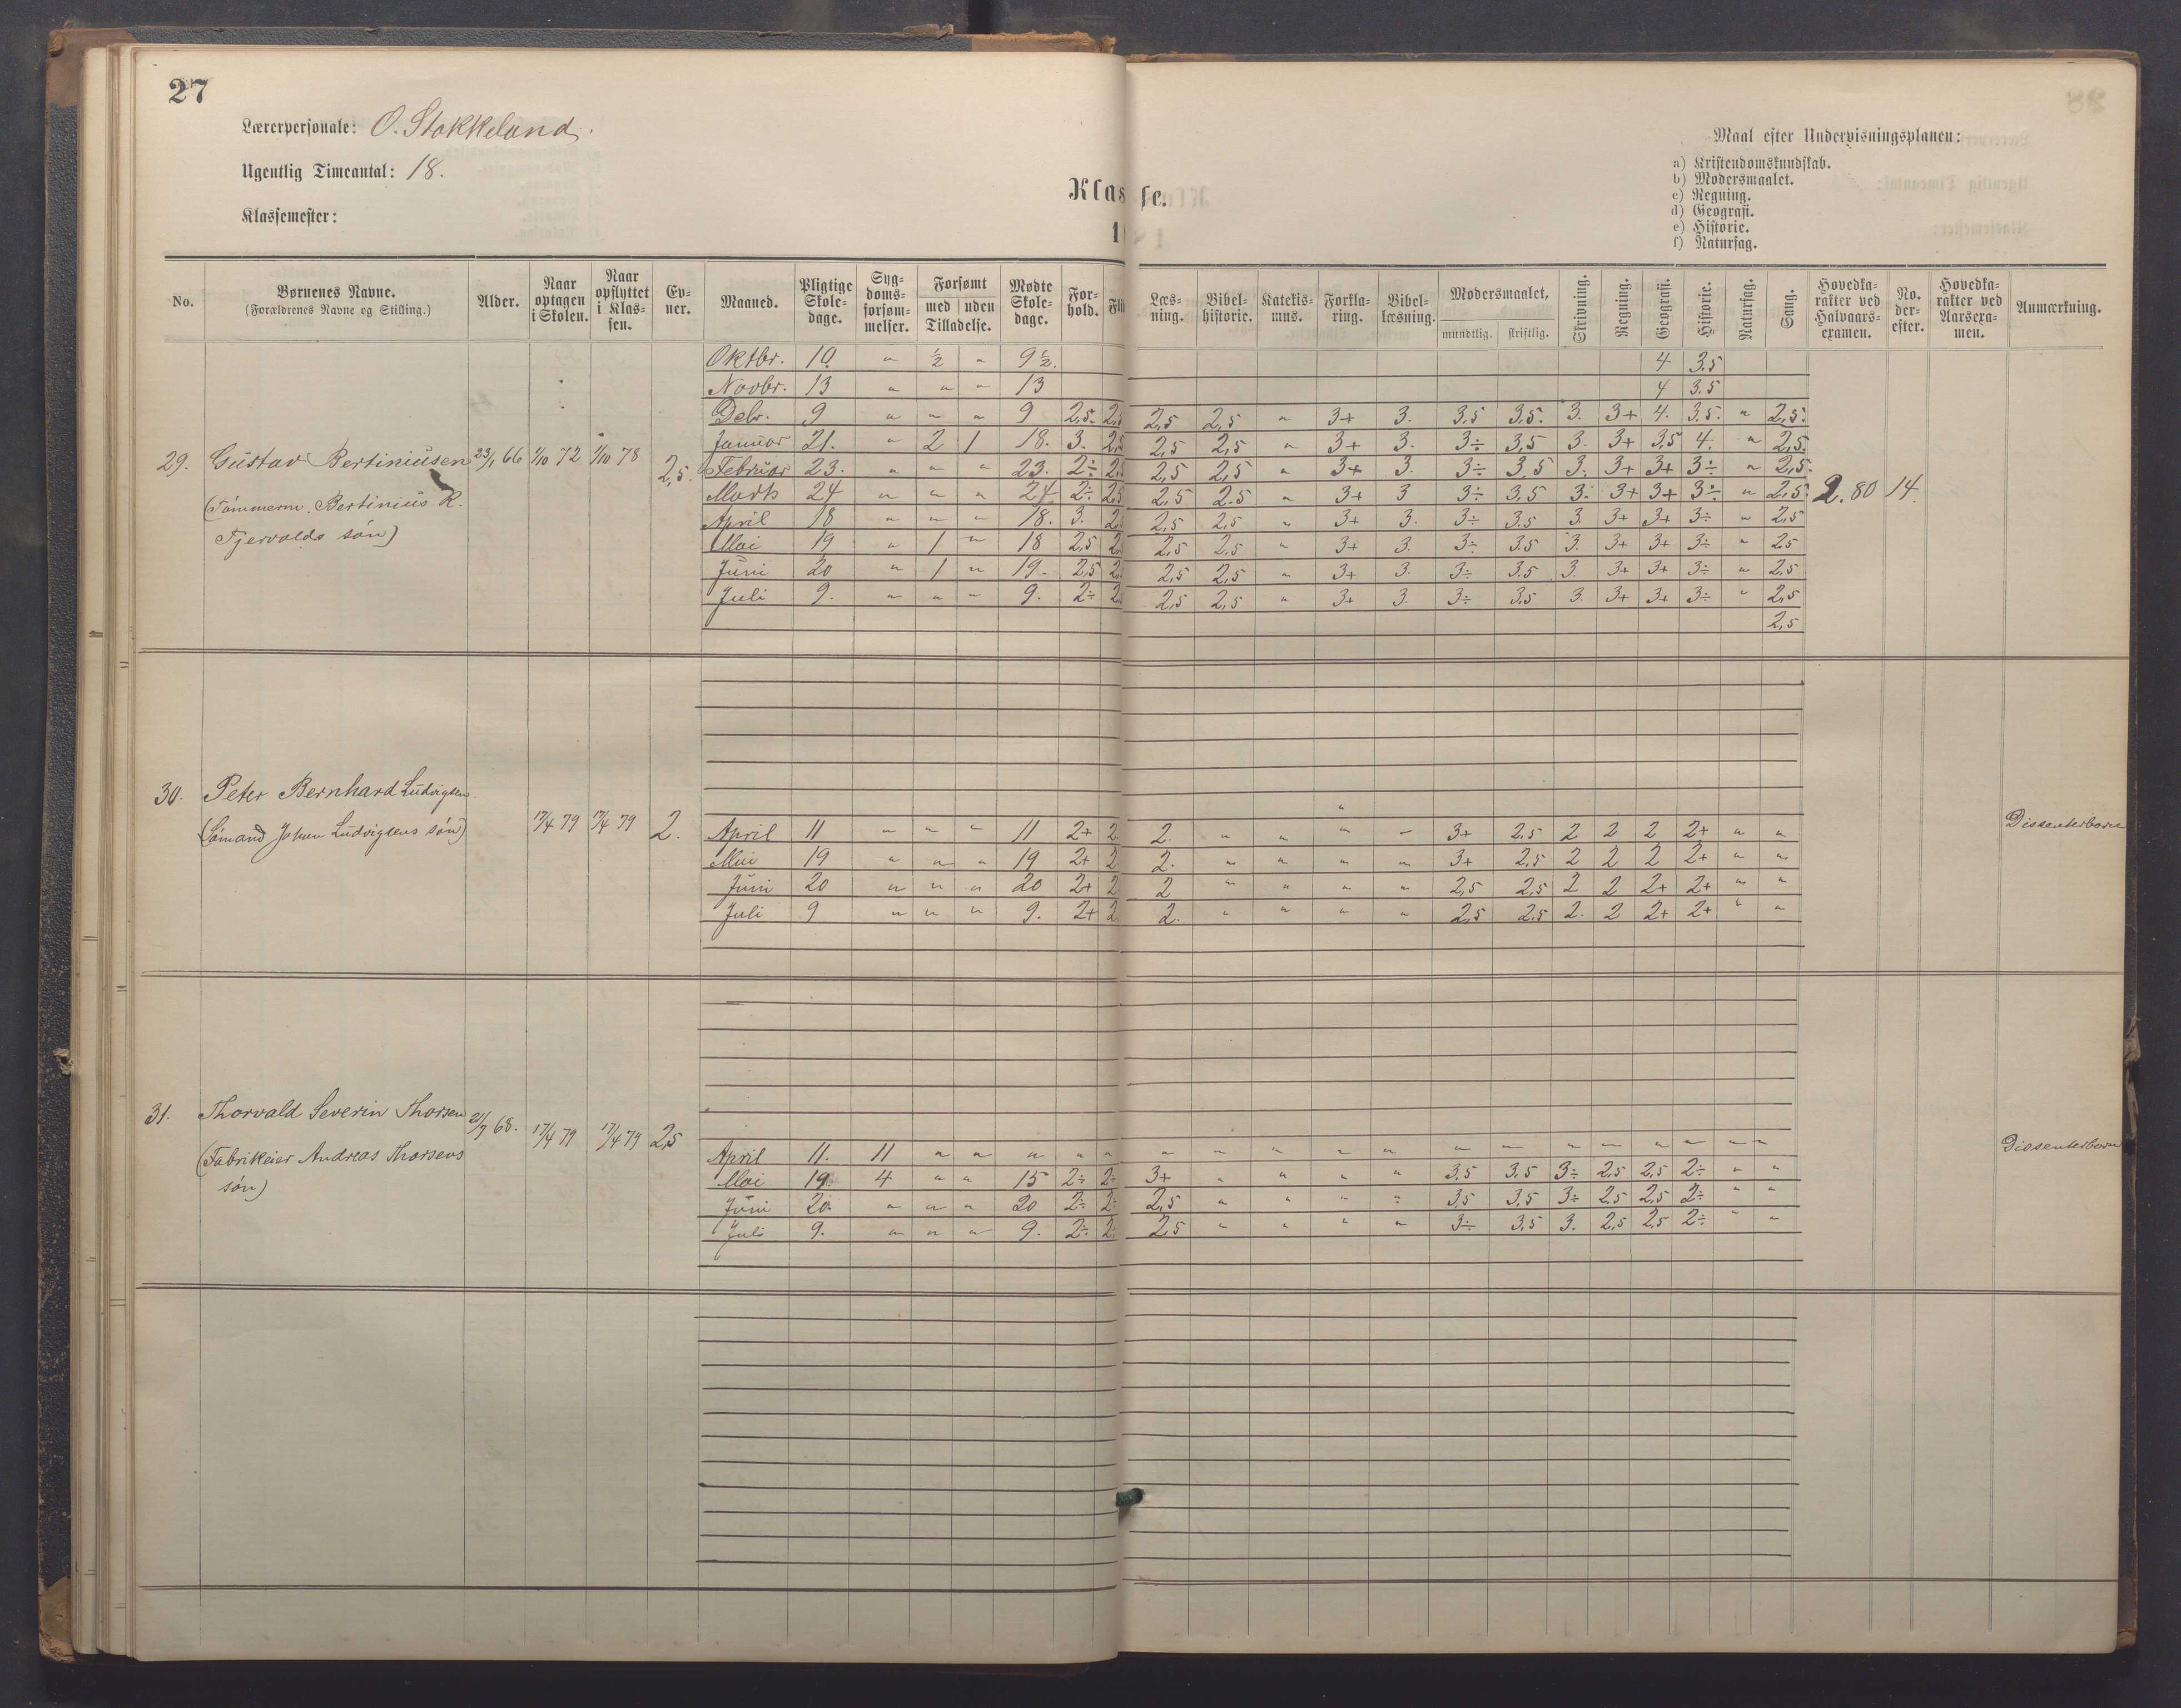 27
Lærerpersonale: O. Stokkeland.
Ugentlig Timeantal: 18.
Klassemester:
Klasse.
Maal efter Undervisningsplanen:
a) Kristendomskundskab.
b) Modersmaalet.
c) Regning.
d) Geografi.
e) Historie.
f) Naturfag.
No. Børnenes Navne. (Forældrenes Navne og Stilling.) Alder. Naar optagen i Skolen. Naar opflyttet i Klassen. Evner. Maaned. Pligtige Skoledage. Sygdomsforsømmelser. Forsømt med uden Tilladelse. Mødte Skoledage. Forhold. Læsning. Bibelhistorie. Katekismus. Forklaring. Bibellæsning. Modersmaalet, mundtlig. skriftlig. Skrivning. Regning. Geografi. Historie. Naturfag. Sang. Hovedkarakter ved Halvaarsexamen. No. derefter. Hovedkarakter ved Aarsexamen. Anmærkning.
Oktbr. 10. " ½ " 9½. 4 3.5
Novbr. 13 " " " 13 4 3.5
Debr. 9 " " " 9 2,5. 2,5 2,5 2,5 " 3+ 3. 3,5 3,5. 3. 3+ 4. 3,5. " 2,5.
Januar 21. " 2 1 18. 3. 2,5 2,5 2,5 " 3+ 3. 3÷ 3,5 3. 3+ 3,5 4. " 2,5.
29. Gustav Bertiniusen 23/1 66 1/10 72 1/10 78 2,5. Februar 23. " " " 23. 2÷ 2,5 2,5 2,5 " 3+ 3. 3÷ 3,5 3. 3+ 3+ 3÷ " 2,5.
(Tømmerm. Bertinius R. Marts 24 " " " 24 2÷ 2,5 2,5 2.5 " 3+ 3 3÷ 3,5 3. 3+ 3+ 3÷ " 2,5. 2.80 14.
Tjervolds søn) April 18 " " " 18. 3. 2,5 2,5 2,5 " 3+ 3. 3÷ 3.5 3. 3+ 3+ 3÷ " 2,5
Mai 19 " 1 " 18 2,5 2,5 2,5 2.5 " 3+ 3. 3÷ 3.5 3. 3+ 3+ 3÷ " 2.5
Juni 20 " 1 " 19. 2,5 2,5 2,5 2,5 " 3+ 3. 3÷ 3.5 3. 3+ 3+ 3÷ " 2,5
Juli 9. " " " 9. 2÷ 2,5 2,5 2,5 " 3+ 3. 3÷ 3,5 3. 3+ 3+ 3÷ " 2,5
2,5
30. Peter Bernhard Ludvigsen
(Sømand Johan Ludvigsens søn) 17/4 79 17/4 79 2. April 11 " " " 11 2+ 2 2. " " " " 3+ 2.5 2 2 2 2+ " " Dissenterbarn
Mai 19 " " " 19 2+ 2 2. " " " " 3+ 2,5 2 2 2 2+ " "
Juni 20 " " " 20 2+ 2 2 " " " " 2,5 2,5 2 2 2+ 2+ " "
Juli 9 " " " 9. 2+ 2 2. " " " " 2,5 2.5 2. 2 2+ 2+ " "
31. Thorvald Severin Thorsen 21/7 68. 17/4 79 17/4 79 2,5
(Fabrikeier Andreas Thorsens April 11. 11 " " " " " " " " " " " " " " " " " " Dissenterbarn
søn) Mai 19 4 " " 15 2÷ 2÷ 3+ " " " " 3,5 3,5 3÷ 2,5 2,5 2÷ " "
Juni 20. " " " 20 2÷ 2÷ 2,5 " " " " 3,5 3,5 3÷ 2,5 2,5 2÷ " "
Juli 9. " " " 9. 2÷ 2÷ 2,5 " " " " 3÷ 3,5 3. 2,5 2,5 2÷ " "